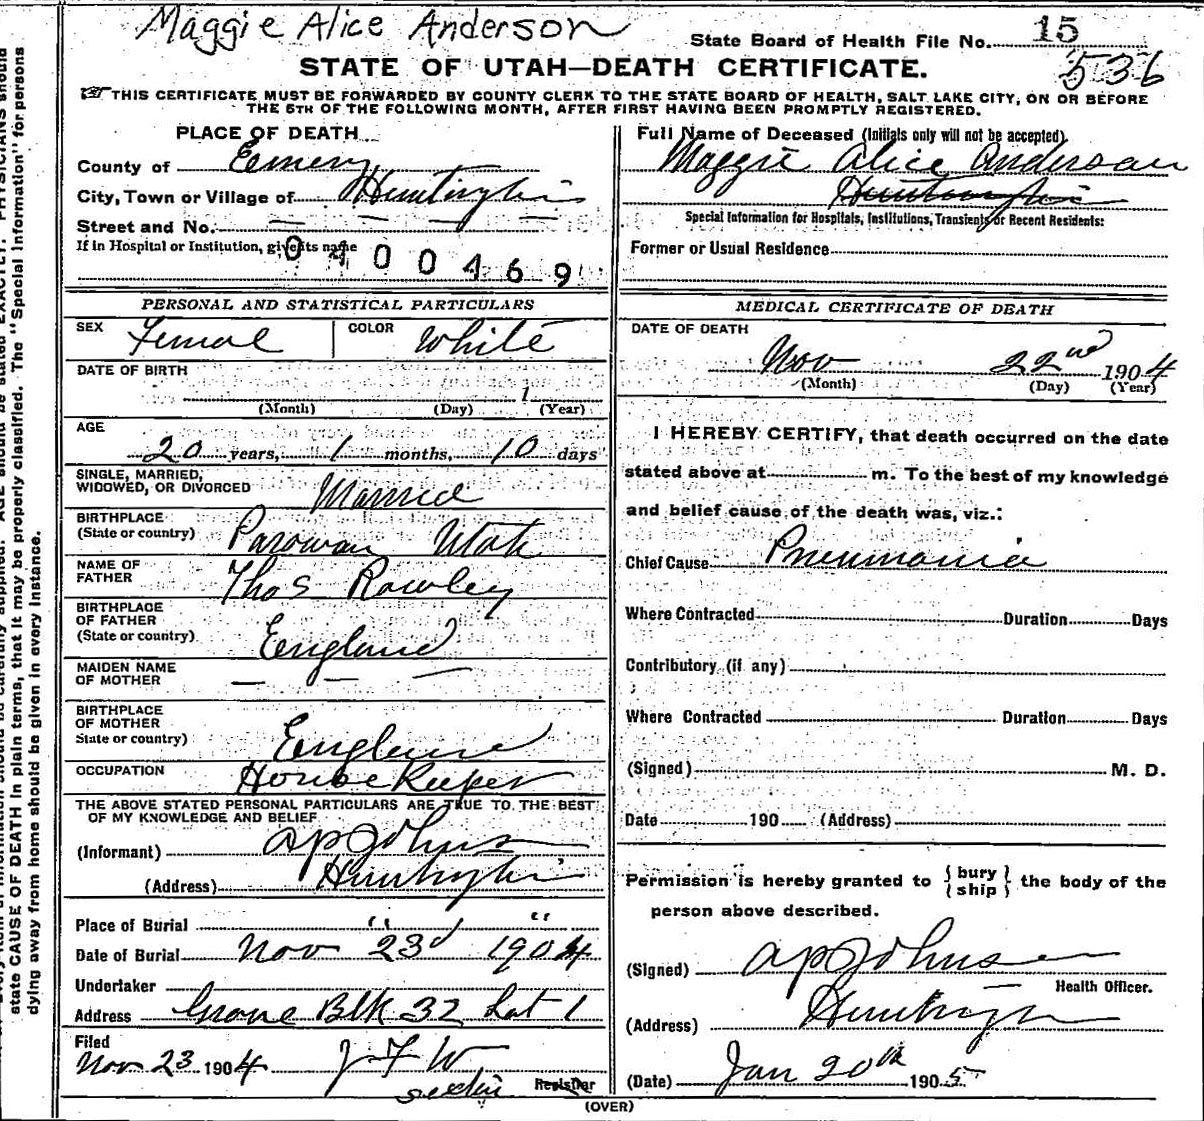 Maggie Alice Anderson
State Board of Health File No. 15
536
STATE OF UTAH—DEATH CERTIFICATE.
THIS CERTIFICATE MUST BE FORWARDED BY COUNTY CLERK TO THE STATE BOARD OF HEALTH, SALT LAKE CITY, ON OR BEFORE
THE 5TH OF THE FOLLOWING MONTH, AFTER FIRST HAVING BEEN PROMPTLY REGISTERED.
PLACE OF DEATH
County of Emery
City, Town or Village of Huntington
Street and No. — — — —
If in Hospital or Institution, give its name
0400469
PERSONAL AND STATISTICAL PARTICULARS
SEX Female COLOR White
DATE OF BIRTH
1
(Month) (Day) (Year)
AGE
20 years, 1 months, 10 days
SINGLE, MARRIED,
WIDOWED, OR DIVORCED Married
BIRTHPLACE
(State or country) Parowan Utah
NAME OF
FATHER Thos Rowley
BIRTHPLACE
OF FATHER
(State or country) England
MAIDEN NAME
OF MOTHER — — —
BIRTHPLACE
OF MOTHER
State or country) England
OCCUPATION House Keeper
THE ABOVE STATED PERSONAL PARTICULARS ARE TRUE TO THE BEST
OF MY KNOWLEDGE AND BELIEF
(Informant)
(Address) Huntington
Place of Burial " "
Date of Burial Nov 23d 1904
Undertaker
Address Grave Blk 32 Lot 1
Filed
Nov 23 1904 J F W
Registrar
Full Name of Deceased (Initials only will not be accepted).
Maggie Alice Anderson
Huntington
Special Information for Hospitals, Institutions, Transients or Recent Residents:
Former or Usual Residence
MEDICAL CERTIFICATE OF DEATH
DATE OF DEATH
Nov 22nd 1904
(Month) (Day) (Year)
I HEREBY CERTIFY, that death occurred on the date
stated above at m. To the best of my knowledge
and belief cause of the death was, viz.:
Chief Cause Pneumonia
Where Contracted Duration Days
Contributory (if any)
Where Contracted Duration Days
(Signed) M. D.
Date 190 (Address)
Permission is hereby granted to {bury
ship} the body of the
person above described.
(Signed)
Health Officer.
(Address) Huntington
(Date) Jan 20th 1905
(OVER)
state CAUSE OF DEATH in plain terms, that it may be properly classified. The "Special Information" for persons
dying away from home should be given in every instance.